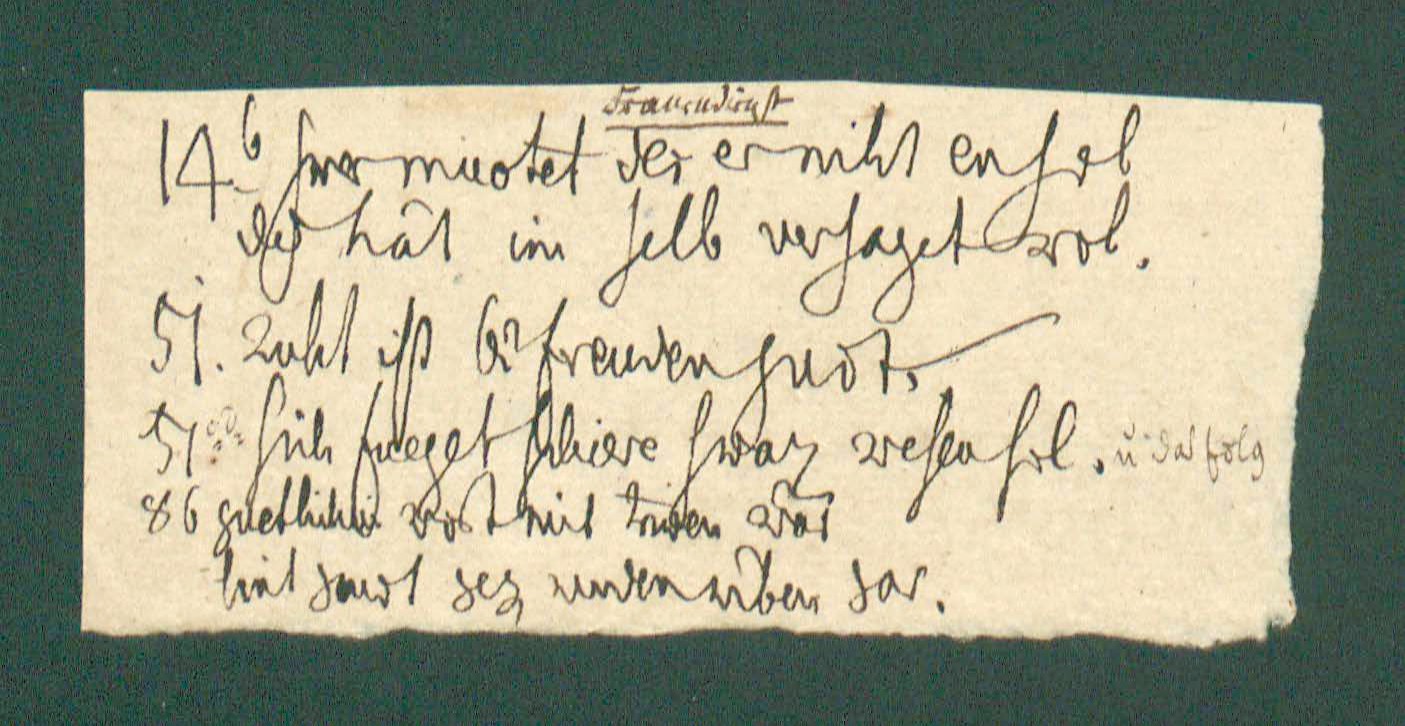 Frauendienst
14b swer muotet des er niht ensol
der hât im selb versaget wol.
51. zuht ist bi freuden guot.
51 sich füeget schiere swaz wesen sol. u das folg
86 guetlichiu wort mit triwen war
sint guot gez